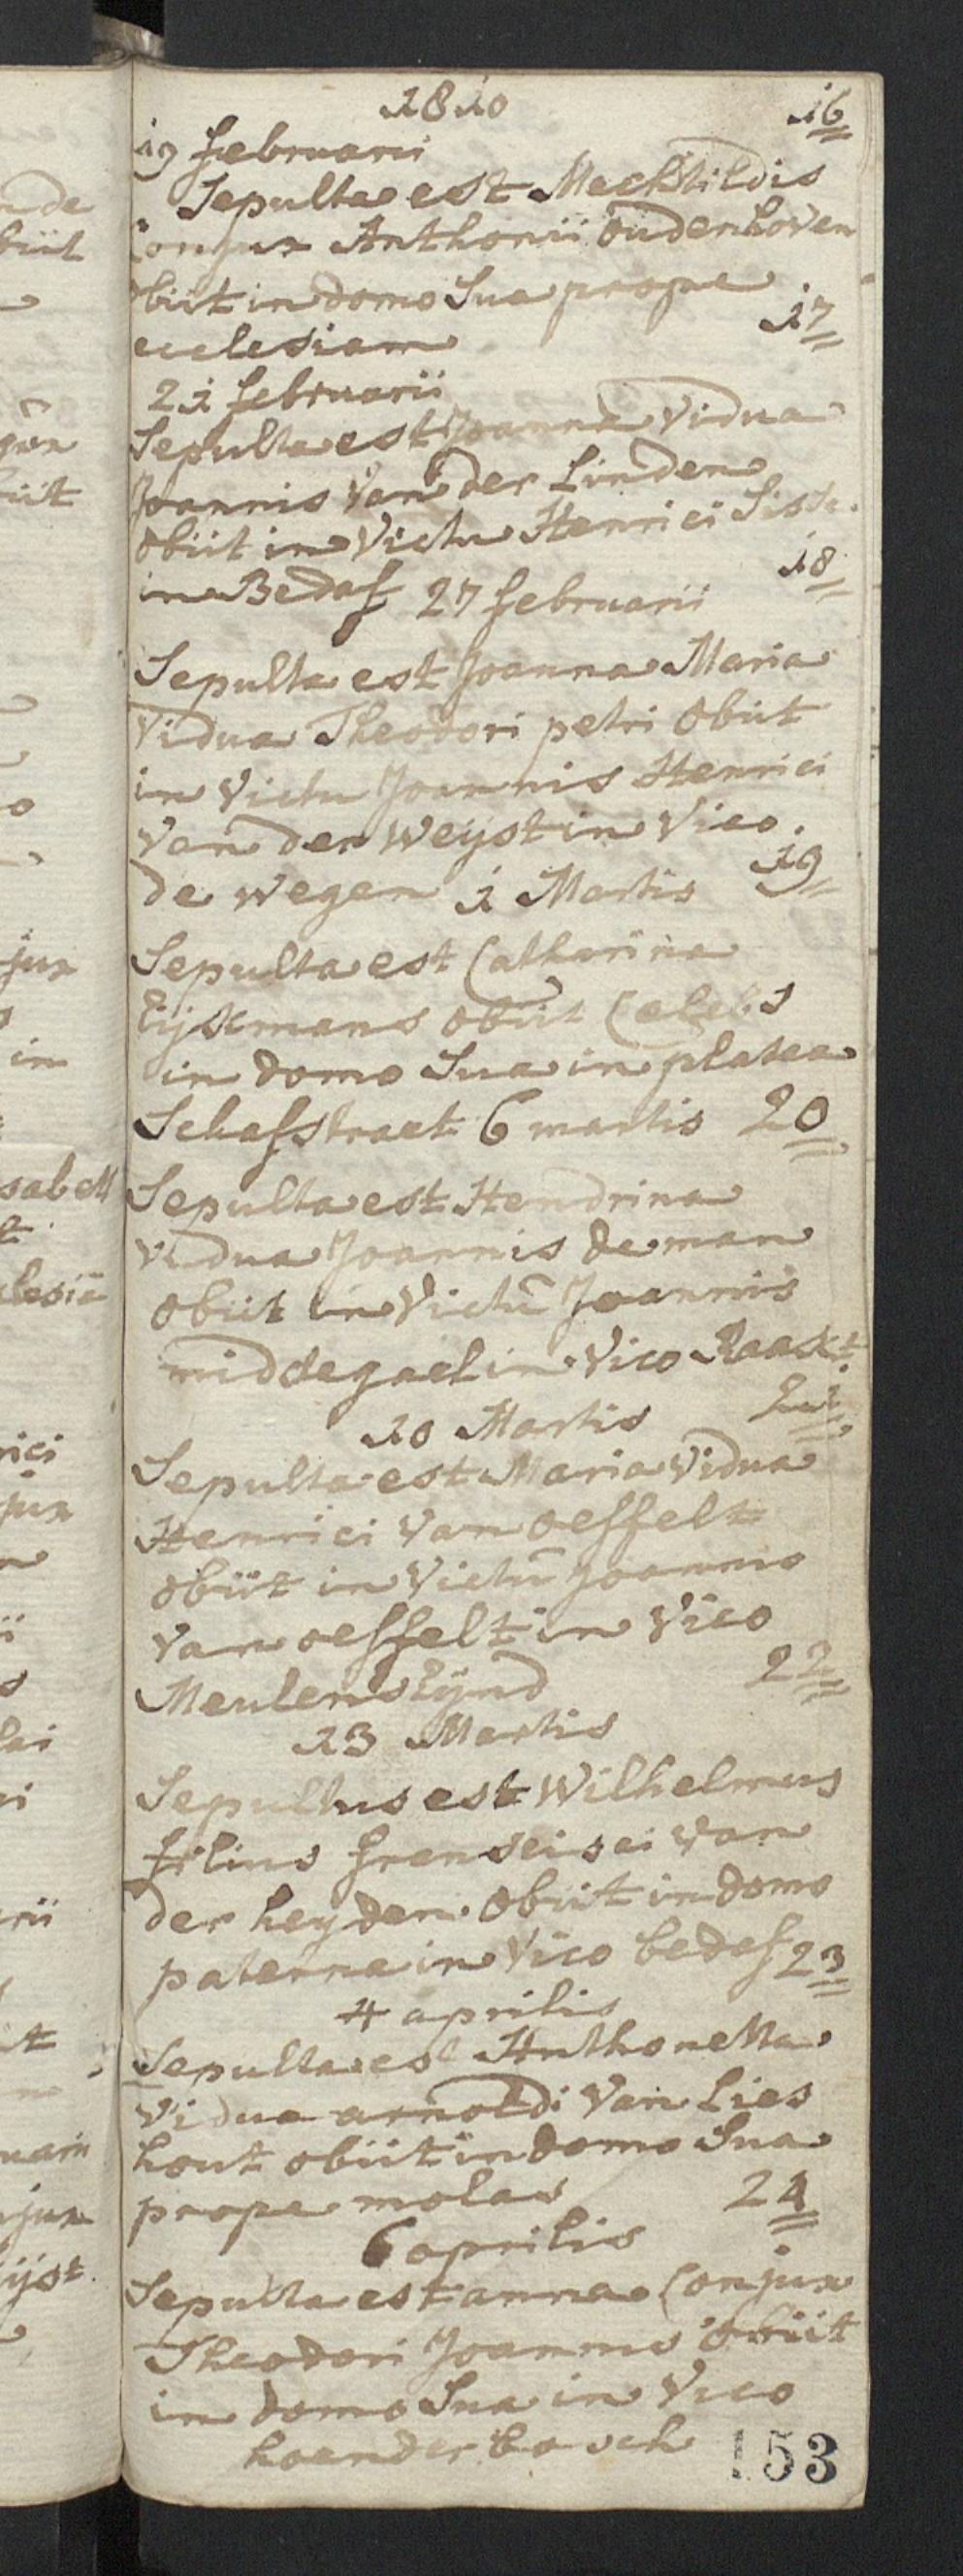 1810
16
19 februarii
Sepulta est Mechtildis
Conjux Anthonii oudenhoven
obiit in domo Sua prope
ecclesiam
17
21 februarii
Sepulta est Joanna Vidua
Joannis Van der Linden
obiit in Victu Henrici Siss.
in Bedaf 27 februarii
18
Sepulta est Joanna Maria
Vidua Theodori petri obiit
in Victu Joannis Henrici
Van der Weijst in Vico.
de wegen 1 Martis
19
Sepulta est Catharina
Eijkmans obiit Celebs
in domo Sua in platea
Schafstraet 6 martis 20
Sepulta est Hendrina
Vidua Joannis de man
obiit in Victu Joannis
middegael in Vico Raakt.
10 Martis 21
Sepulta est Maria Vidua
Henrici Van oeffelt
obiit in Victu Joannis
Van oeffelt in Vico
Meulenseijnd
22
13 Martis
Sepultus est Wilhelmus
filius franseisci van
der heyden. obiit in domo
paterna in Vico bedaf 23
4 aprilis
Sepulta est Anthonetta
Vidua arnoldi Van Lies
hout obiit in domo Sua
prope molas 24
6 aprilis
Sepulta est anna Conjux
Theodori Joannis obiit
in domo Sua in Vico
hoenderbosch
153
nde
biit
iit
jux
in
sabell
lesiē
rici
jux
lai
rii
jux
ijst.